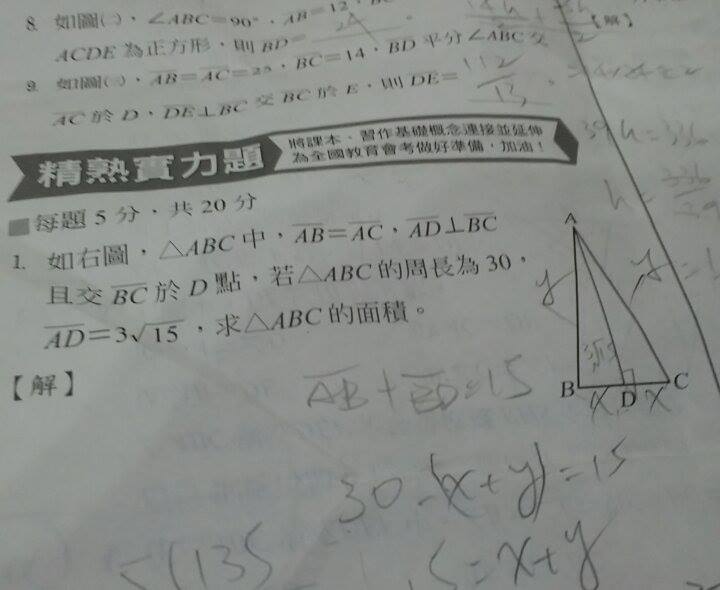 8. 如圖(二),∠ABC=90°,AB=12,
ACDE 為正方形,則 BD= 24 。
9. 如圖(三),AB=AC=25,BC=14,BD 平分∠ABC 交
AC 於 D,DE⊥BC 交 BC 於 E,則 DE= 112
精熟實力題
將課本、習作基礎概念連接並延伸
為全國教育會考做好準備,加油!
■每題 5 分,共 20 分
1. 如右圖,△ABC 中,AB=AC,AD⊥BC
且交 BC 於 D 點,若△ABC 的周長為 30,
AD=3√15,求△ABC 的面積。
【解】
A
y
y
3√15
B
D
C
x
x
AB+BD=15
30-(x+y)=15
=x+y
【解】
39h=336
h=